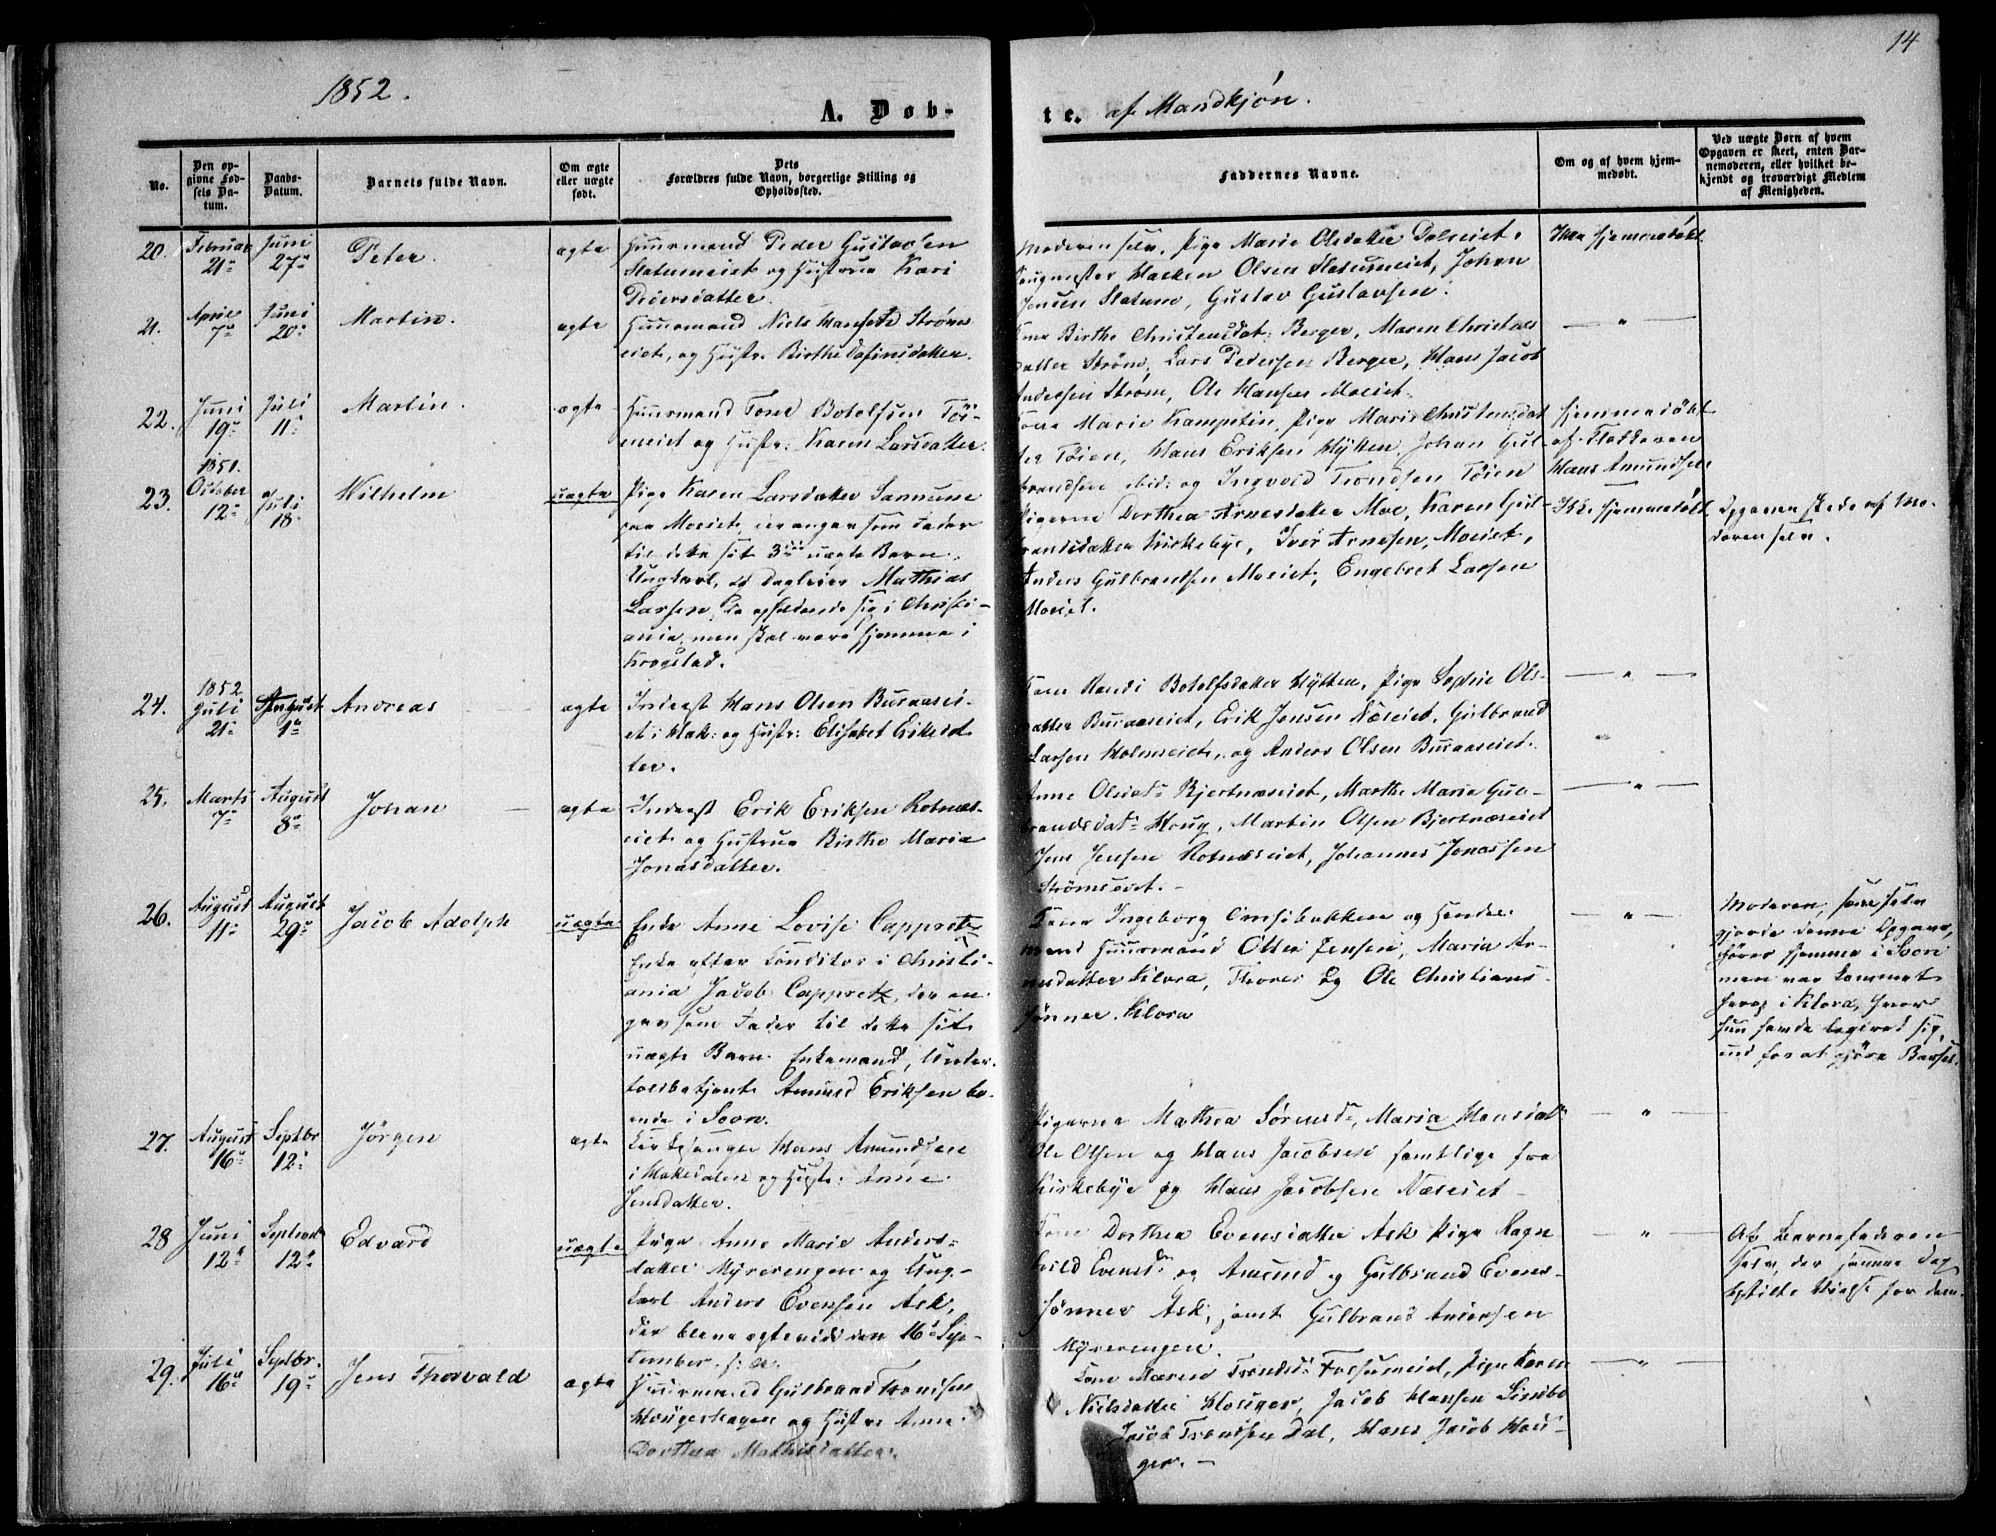 14
1852.
A. Døb-
te. af Mandkjøn.
No.
Den op-
givne Fød-
sels Da-
tum.
Daabs-
Datum.
Barnets fulde Navn.
Om ægte
eller uægte
født.
Dets
Forældres fulde Navn, borgerlige Stilling og
Opholdssted.
Faddernes Navne.
Om og af hvem hjem-
medøbt.
Ved uægte Børn af hvem
Opgaven er skeet, enten Bar-
nemoderen, eller hvilket be-
kjendt og troværdigt Medlem
af Menigheden.
20. Februar Juni Peter. ægte Huusmand Peder Gustavsen
21 27
Slatumeiet og Hustrue Kari
Pedersdatter.
Moderen selv, Pige Marie Olsdatter Dalseiet,
Haagen Olsen Slatumeiet, Johan
Jensen Slatum, Gustav Gustavsen.
Ikke hjemmedøbt
21. April Juni Martin. ægte Huusmand Niels Hansen Strøms
7 20
eiet, og Hustr. Birthe
Kone Birthe Christensdat: Berger, Maren Christens
datter Strøm, Lars Pedersen Berger, Hans Jacob
Andersen Strøm, Ole Hansen Moeiet.
— " —
22. Juni Juli Martin. ægte Huusmand Tosten Botolfsen Töi-
19 11
eneiet og Hustr. Karen Larsdatter.
Kone Marie Kampetin, Pige Marie Christensdat
ter Töien, Hans Eriksen Hytten, Johan Gul
brandsen ibid: og Ingvold Trondsen Töien
hjemmedøbt
af Fadderen
Hans Amundsen
23. 1851. October Juli Wilhelm uægte Pige Karen Larsdatter
12 18
paa Moeiet, der angav som Fader
til dette sit 3die uægte Barn
Ungkarl, Dagleier Mathias
Larsen, opholdende sig i Christi-
ania, men skal være hjemme i
Krogstad.
Pigerne Dorthea Arnesdatter Moe, Karen Gul
brandsdatter Kirkebye, Iver Arnesen Moeiet,
Anders Gulbrandsen Moeiet, Engebret Larsen
Moeiet.
Ikke hjemmedøbt
Opgaven skede af Mo-
deren selv.
24. 1852 Juli August Andreas ægte Inderst Hans Olsen Buraasei-
21 1
et i Hak: og Hustr: Elisabet Eriksdat
ter.
Kone Randi Botolfsdatter Hytten, Pige Sophie Ols-
datter Buraaseiet, Erik Jensen Næseiet, Gulbrand
Larsen Holmseiet, og Anders Olsen Buraaseiet.
— " —
25. Marts August Johan ægte Inderst Erik Eriksen Rotnæs-
7 8
eiet og Hustrue Birthe Maria
Jonasdatter.
Anne Olsdr Bjertnæseiet, Marthe Marie Gul-
brandsdatr Houg, Martin Olsen Bjertnæseiet
Jens Jensen Rotnæseiet, Johannes Jonassen
Strømseiet. -
— " —
26. August August Jacob Adolph uægte Enke Anne Lovise Cappretz
11 29
Enke efter Conditor i Christi-
ania Jacob Cappretz, der an-
gav som Fader til dette sit
uægte Barn. Enkemand, Under
toldbetjent Amund Eriksen bo-
ende i Soon.
Kone Ingeborg og
Huusmand Otter Jensen, Maria Ar-
nesdatter Klora, Thorer og Ole Christians
sønner. Klora
— " —
Moderen, som selv
gjorde denne Opgave,
hører hjemme i Soon
men var kommet
herop i Klora, hvor
hun havde logeret sig
ind for at gjöre Barsel.
27. August Septbr. Jörgen ægte Kirkesanger Hans Amundsen
16 12
i Hakedalen og Hust: Anne
Jensdatter.
Pigerne Mathea Sörensdr, Maria Hansdatr
Ole Olsen og Hans Jacobsen samtlige fra
Kirkebye og Hans Jacobsen Næseiet -
— " —
28 Juni Septembr Edvard uægte Pige Anne Marie Anders-
12 12
datter Myrerengen og Ung-
karl Anders Evensen Ask,
der bleve ægteviede den 16 Sep-
tember s: a:
Kone Dorthea Evensdatter Ask Pige Ragn
hild Evensdr og Amund og Gulbrand Evens-
sønner Ask, samt Gulbrand Andersen
Myrerengen.
— " —
Af Barnefaderen
selv, der samme Dag
bestilte Vielse for dem.
29. Juli Septbr. Jens Thorvald ægte Huusmand Gulbrand Trondsen
16 19
Hougerhagen og Hustr. Anne
Dorthea Mathisdatter.
Kone Maren Trondsdr Fossumeiet, Pige Karen
Nielsdatter Houger, Jacob Hansen
Jacob Trondsen Dal, Hans Jacob Hou-
ger. -
— " —